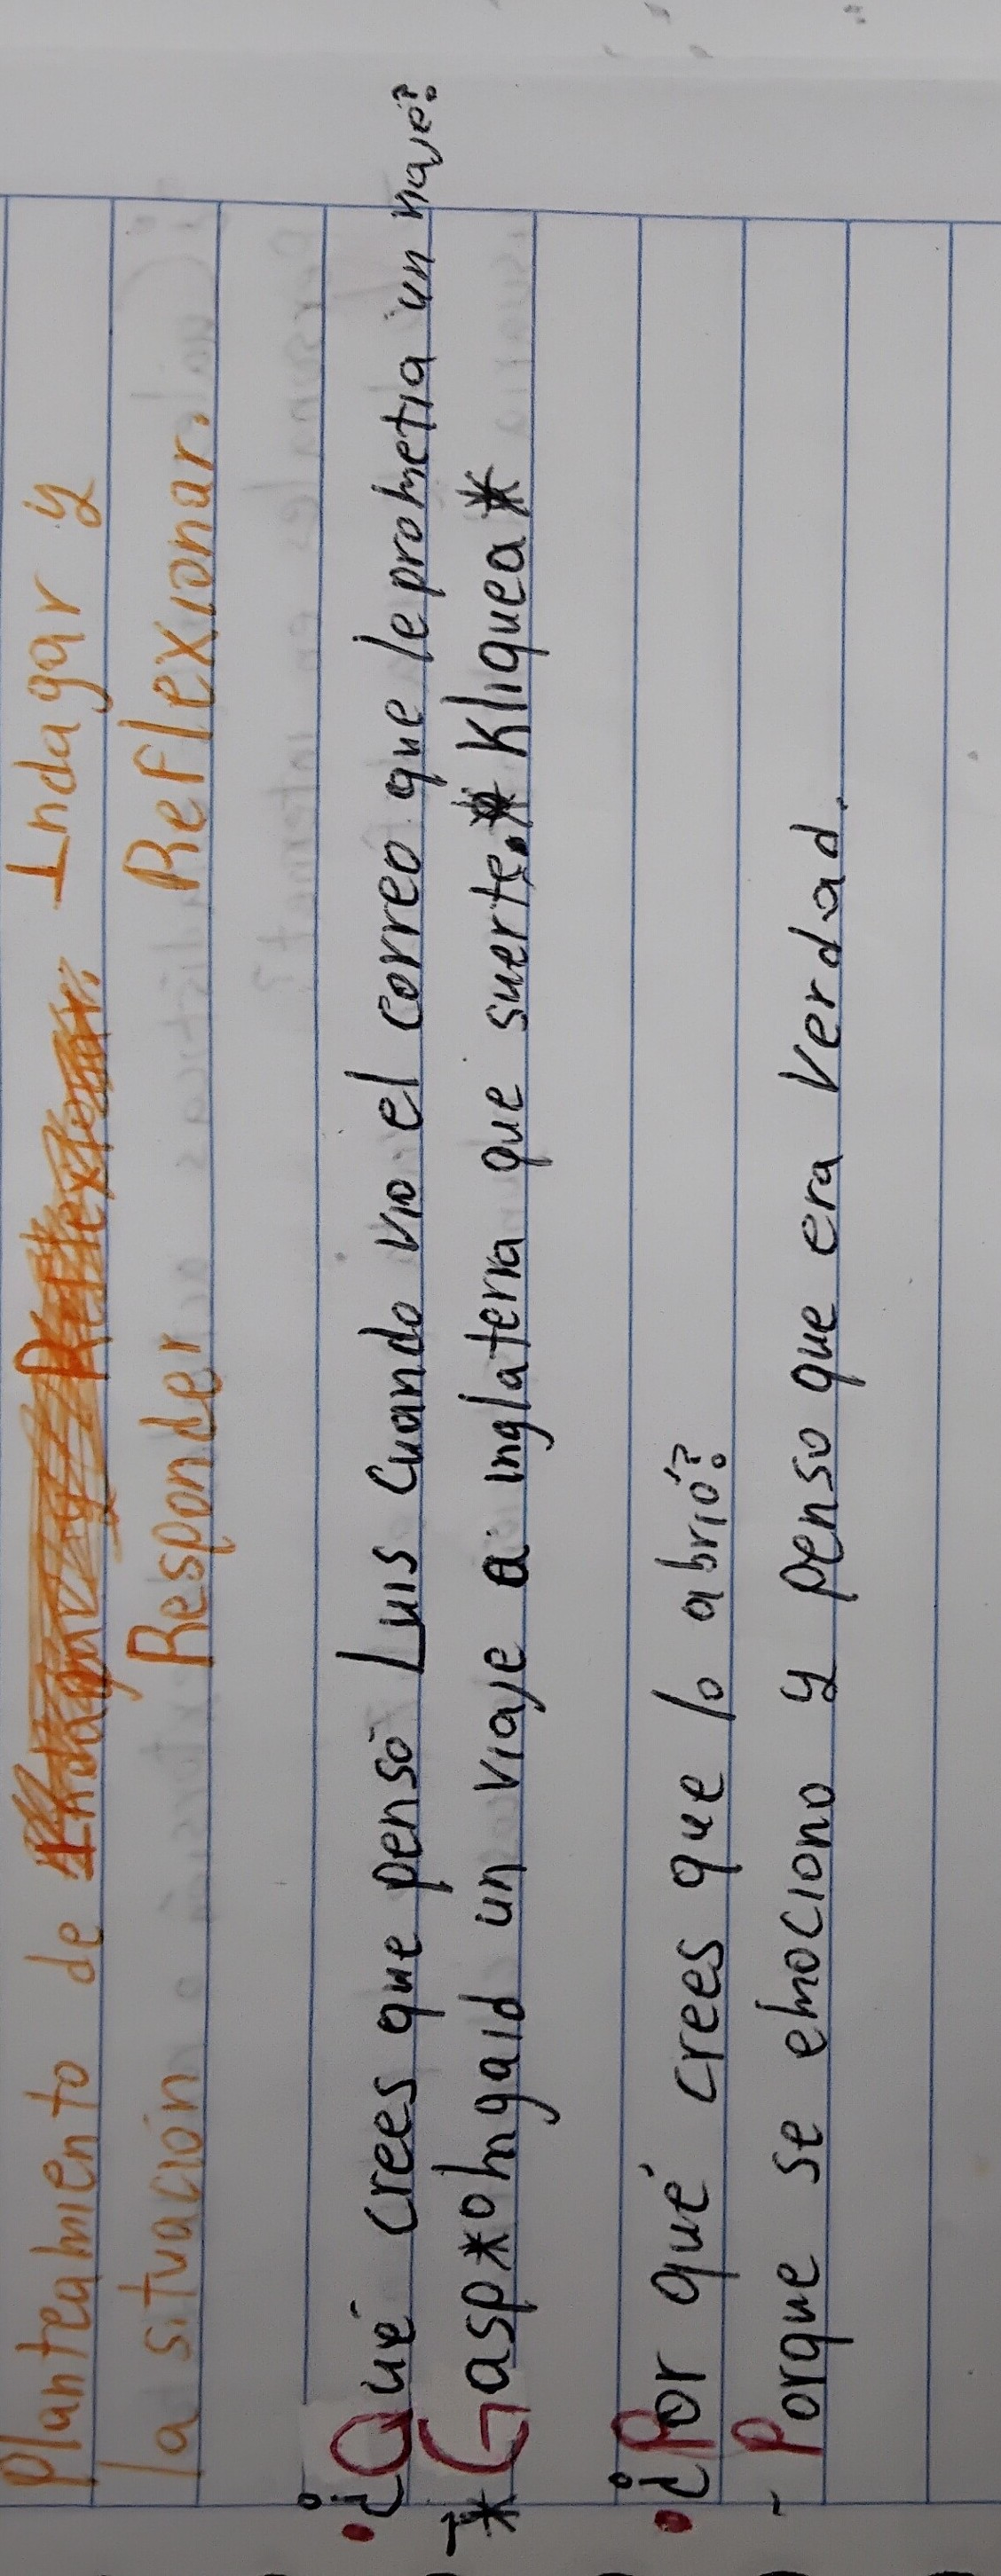 Planteamiento de Indagar y
la situación Responder Reflexionar.
• ¿Qué crees que pensó Luis Cuando vio el correo que le prometia un viaje?
- *Gasp*ohmgaid un viaje a inglaterra que suerte.* Kliquea*
• ¿Por qué crees que lo abrió?
- Porque se emociono y penso que era verdad.